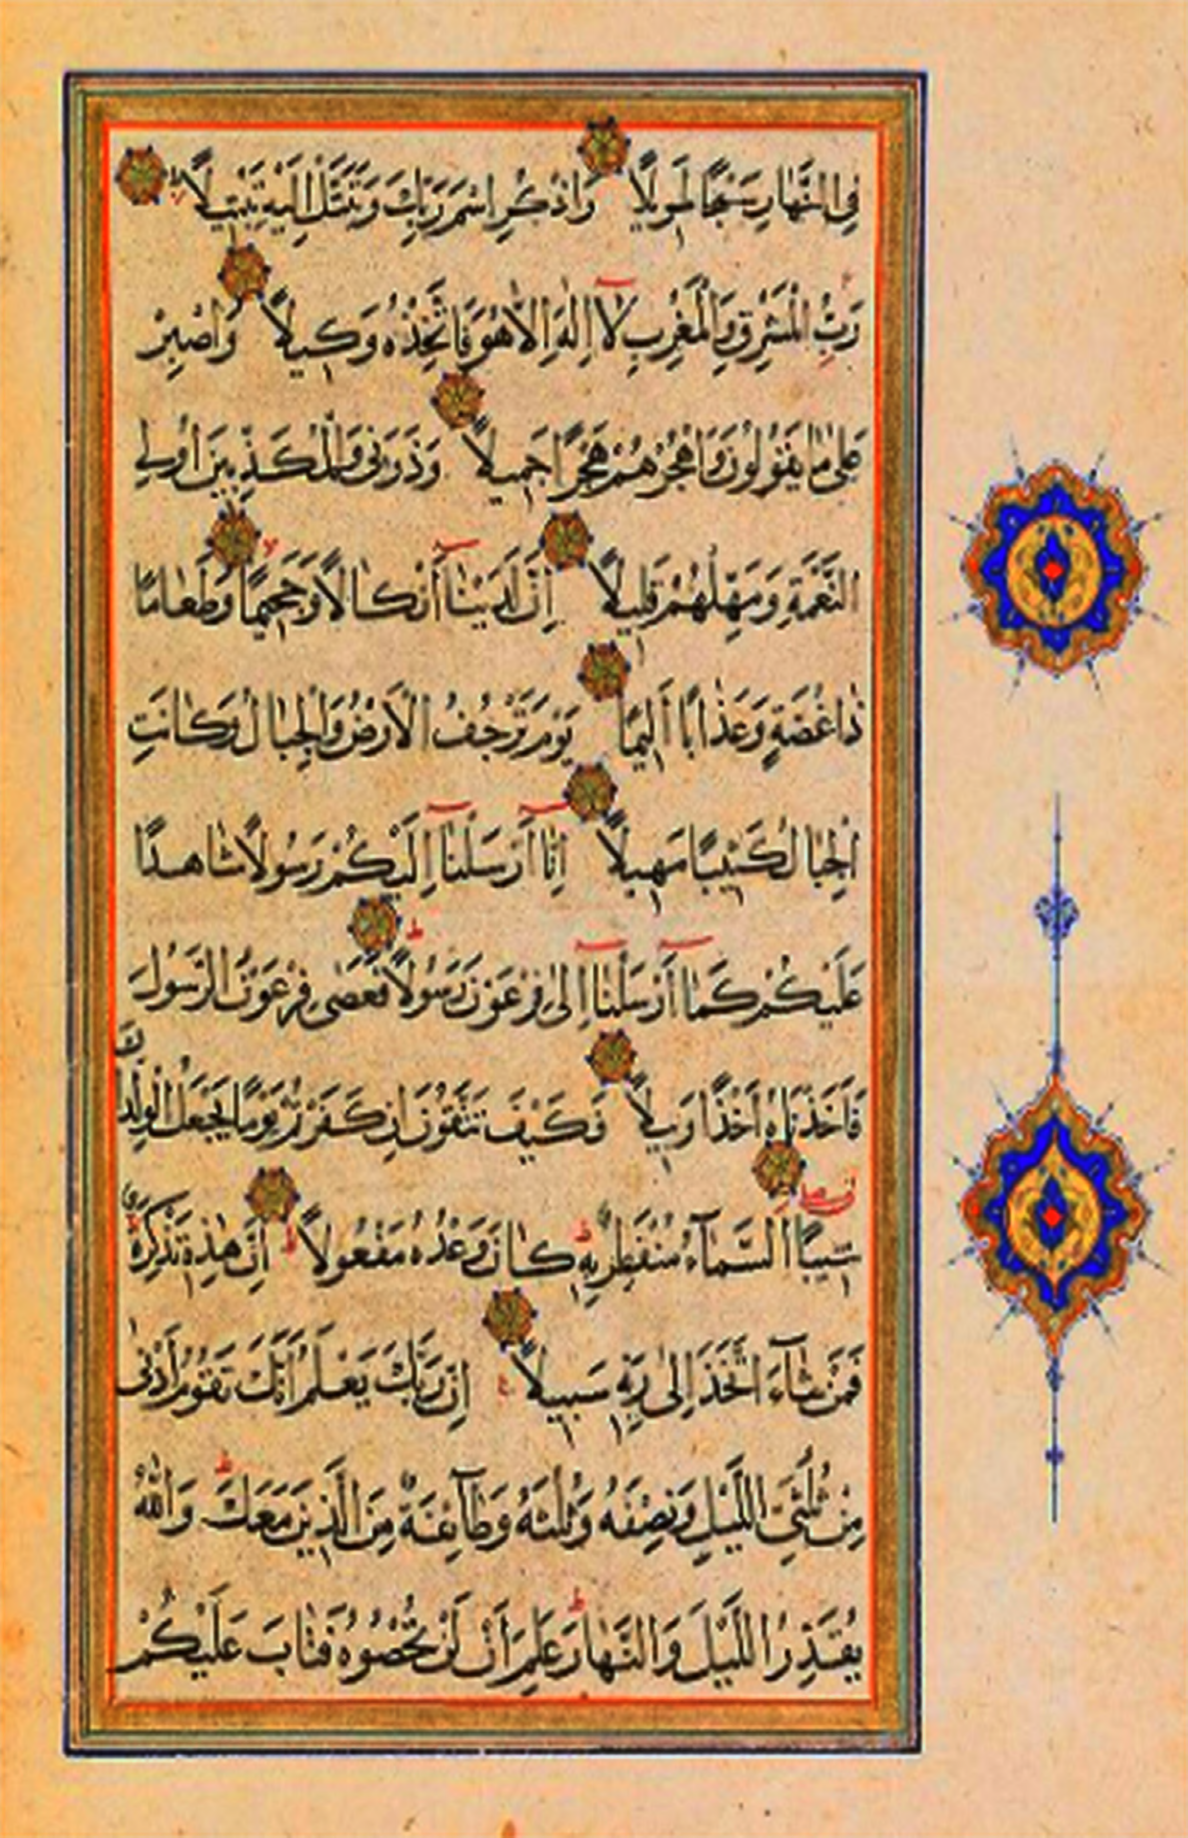 فِى النَّهَارِ سَبْحًا طَوِيلًا وَاذْكُرِ اسْمَ رَبِّكَ وَتَبَتَّلْ إِلَيْهِ تَبْتِيلًا
رَبُّ الْمَشْرِقِ وَالْمَغْرِبِ لَآ إِلٰهَ إِلَّا هُوَ فَاتَّخِذْهُ وَكِيلًا وَاصْبِرْ
عَلٰى مَا يَقُولُونَ وَاهْجُرْهُمْ هَجْرًا جَمِيلًا وَذَرْنِى وَالْمُكَذِّبِينَ أُولِى
النَّعْمَةِ وَمَهِّلْهُمْ قَلِيلًا إِنَّ لَدَيْنَآ أَنْكَالًا وَجَحِيمًا وَطَعَامًا
ذَا غُصَّةٍ وَعَذَابًا أَلِيمًا يَوْمَ تَرْجُفُ الْأَرْضُ وَالْجِبَالُ وَكَانَتِ
الْجِبَالُ كَثِيبًا مَهِيلًا إِنَّآ أَرْسَلْنَآ إِلَيْكُمْ رَسُولًا شَاهِدًا
عَلَيْكُمْ كَمَآ أَرْسَلْنَآ إِلٰى فِرْعَوْنَ رَسُولًا فَعَصٰى فِرْعَوْنُ الرَّسُولَ
فَأَخَذْنَاهُ أَخْذًا وَبِيلًا فَكَيْفَ تَتَّقُونَ إِنْ كَفَرْتُمْ يَوْمًا يَجْعَلُ الْوِلْدَانَ
شِيبًا السَّمَآءُ مُنْفَطِرٌ بِهِ كَانَ وَعْدُهُ مَفْعُولًا إِنَّ هٰذِهِ تَذْكِرَةٌ
فَمَنْ شَآءَ اتَّخَذَ إِلٰى رَبِّهِ سَبِيلًا إِنَّ رَبَّكَ يَعْلَمُ أَنَّكَ تَقُومُ أَدْنٰى
مِنْ ثُلُثَىِ اللَّيْلِ وَنِصْفَهُ وَثُلُثَهُ وَطَآئِفَةٌ مِنَ الَّذِينَ مَعَكَ وَاللّٰهُ
يُقَدِّرُ اللَّيْلَ وَالنَّهَارَ عَلِمَ أَنْ لَنْ تُحْصُوهُ فَتَابَ عَلَيْكُمْ